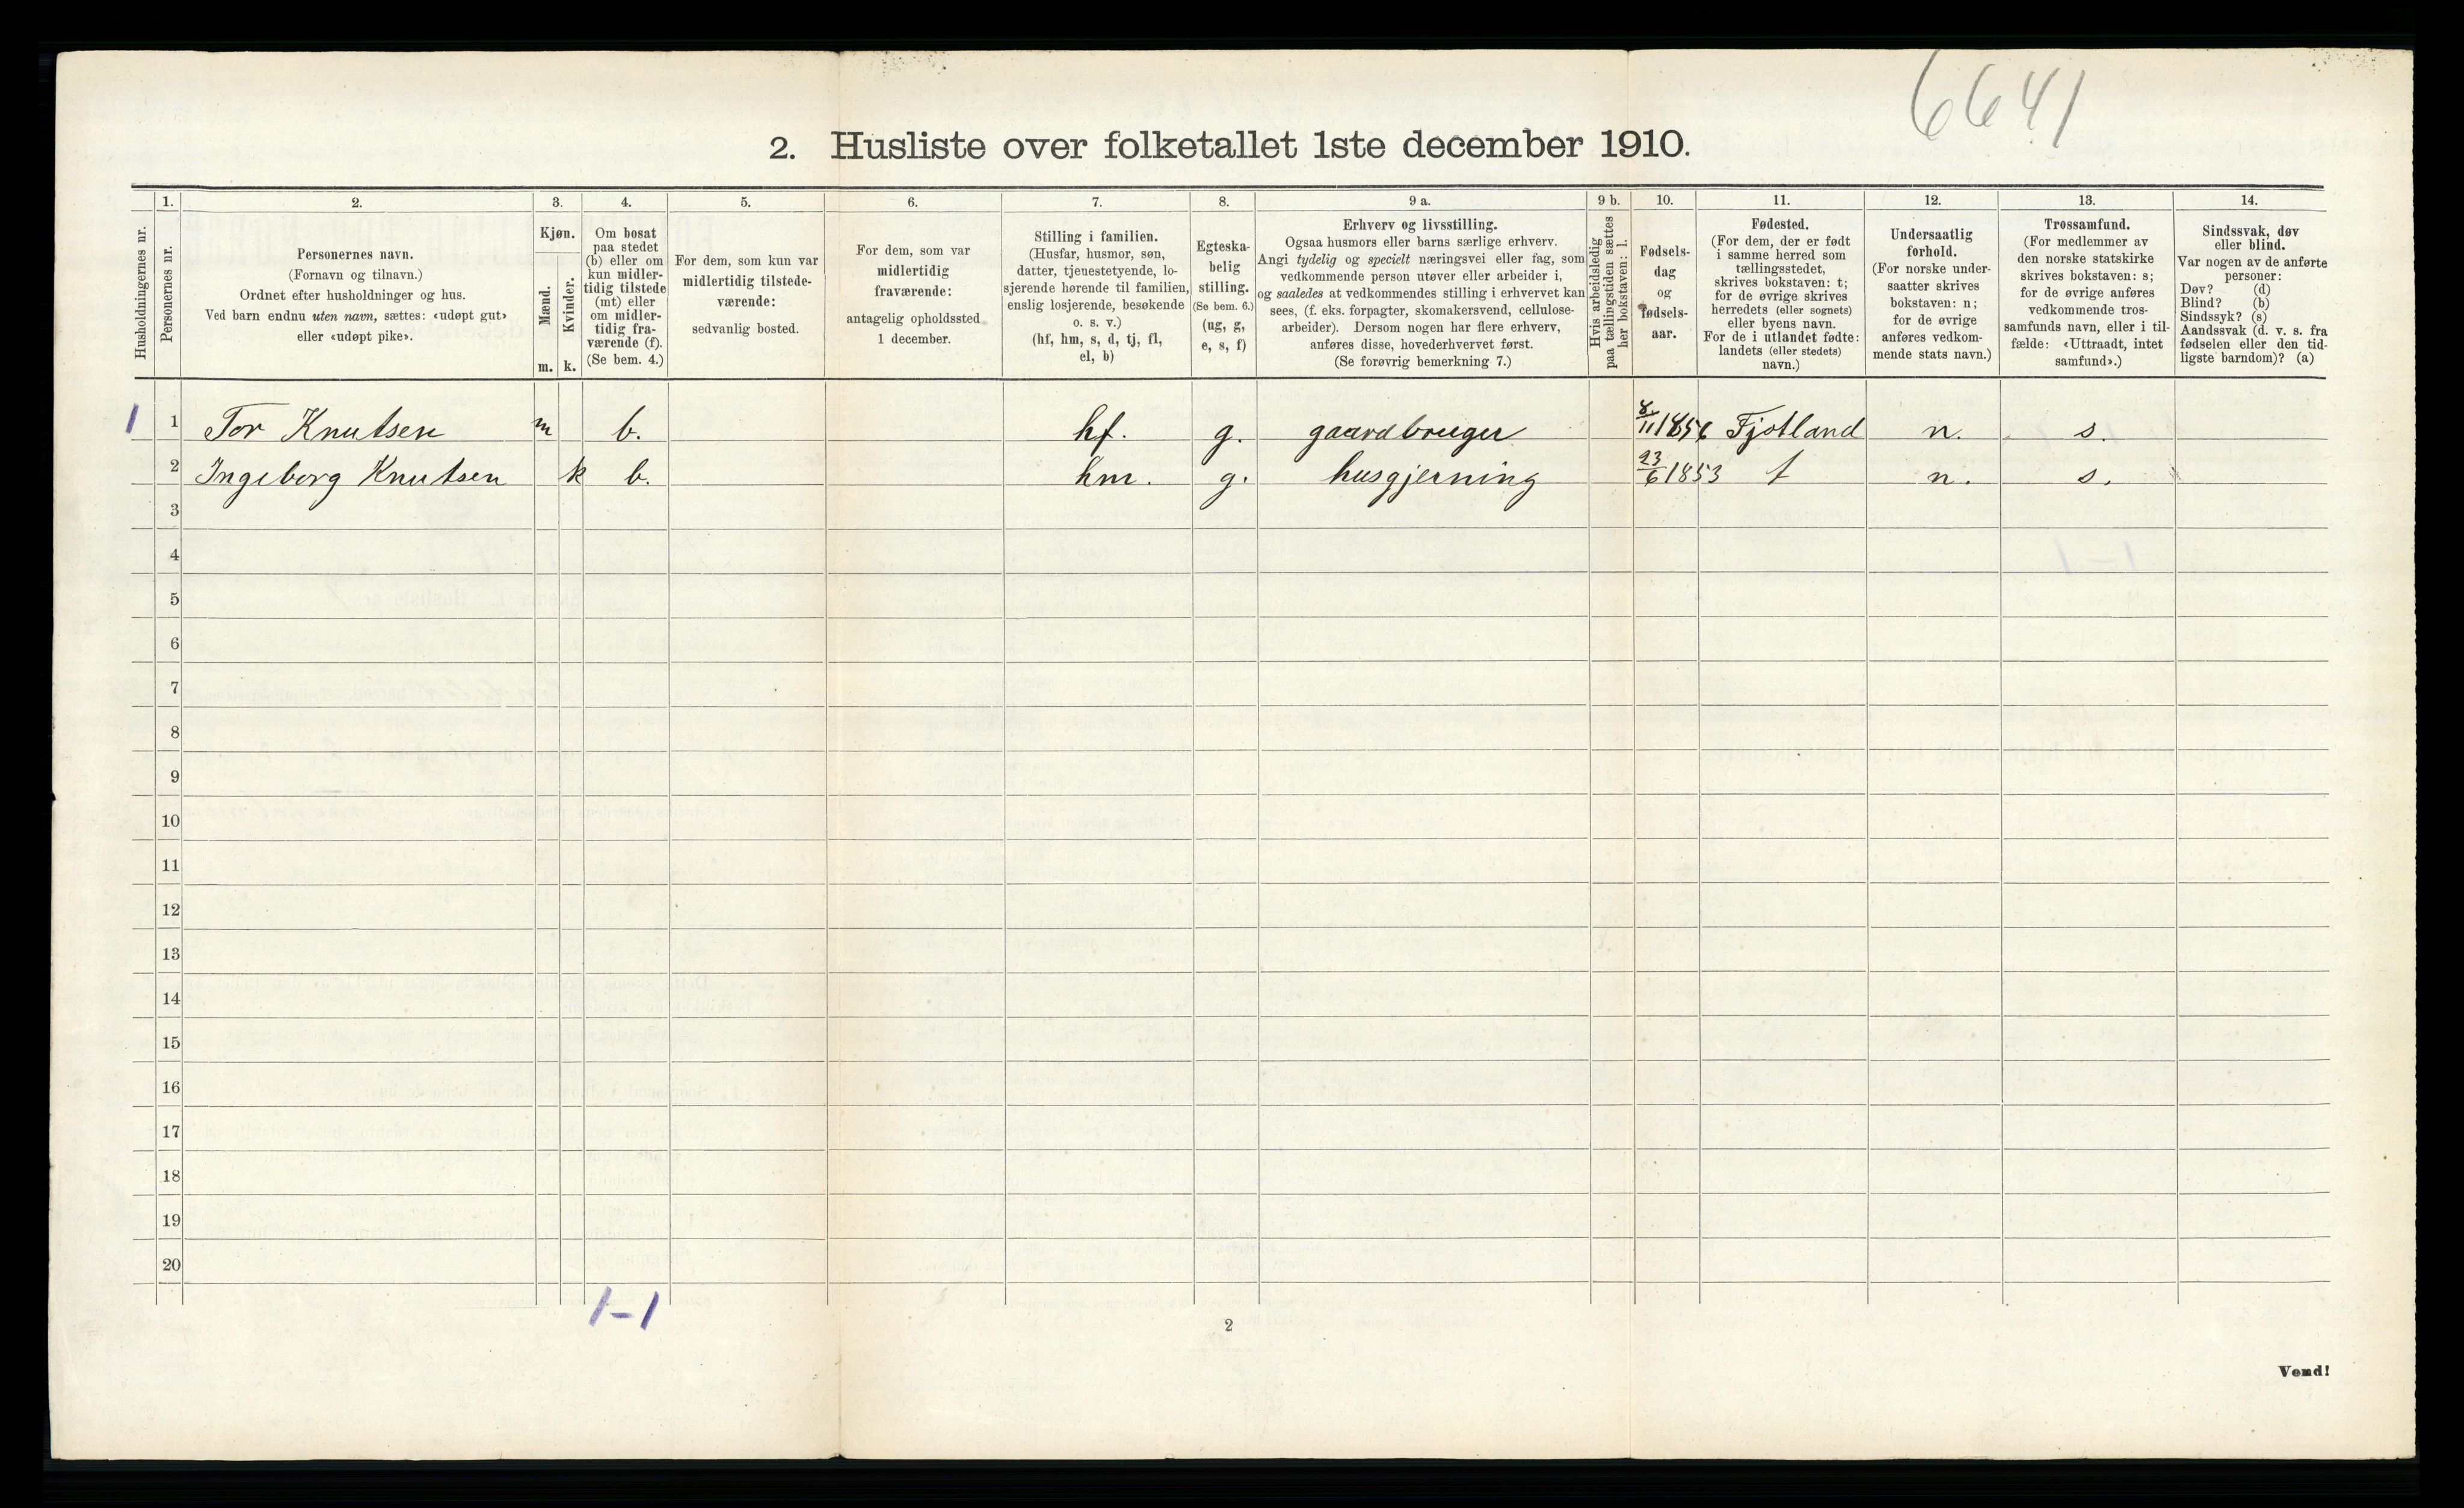 6641
2. Husliste over folketallet 1ste december 1910.
Husholdningernes nr.
1.
Personernes nr.
2.
Personernes navn.
(Fornavn og tilnavn.)
Ordnet efter husholdninger og hus.
Ved barn endnu uten navn, sættes: «udøpt gut»
eller «udøpt pike».
3.
Kjøn.
Mænd.
Kvinder.
m. k.
4.
Om bosat
paa stedet
(b) eller om
kun midler-
tidig tilstede
(mt) eller
om midler-
tidig fra-
værende (f).
(Se bem. 4.)
5.
For dem, som kun var
midlertidig tilstede-
værende:
sedvanlig bosted.
6.
For dem, som var
midlertidig
fraværende:
antagelig opholdssted
1 december.
7.
Stilling i familien.
(Husfar, husmor, søn,
datter, tjenestetyende, lo-
sjerende hørende til familien,
enslig losjerende, besøkende
o. s. v.)
(hf, hm, s, d, tj, fl,
el, b)
8.
Egteska-
belig
stilling.
(Se bem. 6.)
(ug, g,
e, s, f)
9 a.
Erhverv og livsstilling.
Ogsaa husmors eller barns særlige erhverv.
Angi tydelig og specielt næringsvei eller fag, som
vedkommende person utøver eller arbeider i,
og saaledes at vedkommendes stilling i erhvervet kan
sees, (f. eks. forpagter, skomakersvend, cellulose-
arbeider). Dersom nogen har flere erhverv,
anføres disse, hovederhvervet først.
(Se forøvrig bemerkning 7.)
9 b.
Hvis arbeidsledig
paa tællingstiden sættes
her bokstaven: l.
10.
Fødsels-
dag
og
fødsels-
aar.
11.
Fødested.
(For dem, der er født
i samme herred som
tællingsstedet,
skrives bokstaven: t;
for de øvrige skrives
herredets (eller sognets)
eller byens navn.
For de i utlandet fødte:
landets (eller stedets)
navn.)
12.
Undersaatlig
forhold.
(For norske under-
saatter skrives
bokstaven: n;
for de øvrige
anføres vedkom-
mende stats navn.)
13.
Trossamfund.
(For medlemmer av
den norske statskirke
skrives bokstaven: s;
for de øvrige anføres
vedkommende tros-
samfunds navn, eller i til-
fælde: «Uttraadt, intet
samfund».)
14.
Sindssvak, døv
eller blind.
Var nogen av de anførte
personer:
Døv? (d)
Blind? (b)
Sindssyk? (s)
Aandssvak (d. v. s. fra
fødselen eller den tid-
ligste barndom)? (a)
1 1 Tor Knutsen m b. hf. g. gaardbruger 8/11 1856 Fjotland n. s.
2 Ingeborg Knutsen k b. hm. g. husgjerning 23/6 1853 t n. s.
3
4
5
6
7
8
9
10
11
12
13
14
15
16
17
18
19
20
1-1
2
Vend!